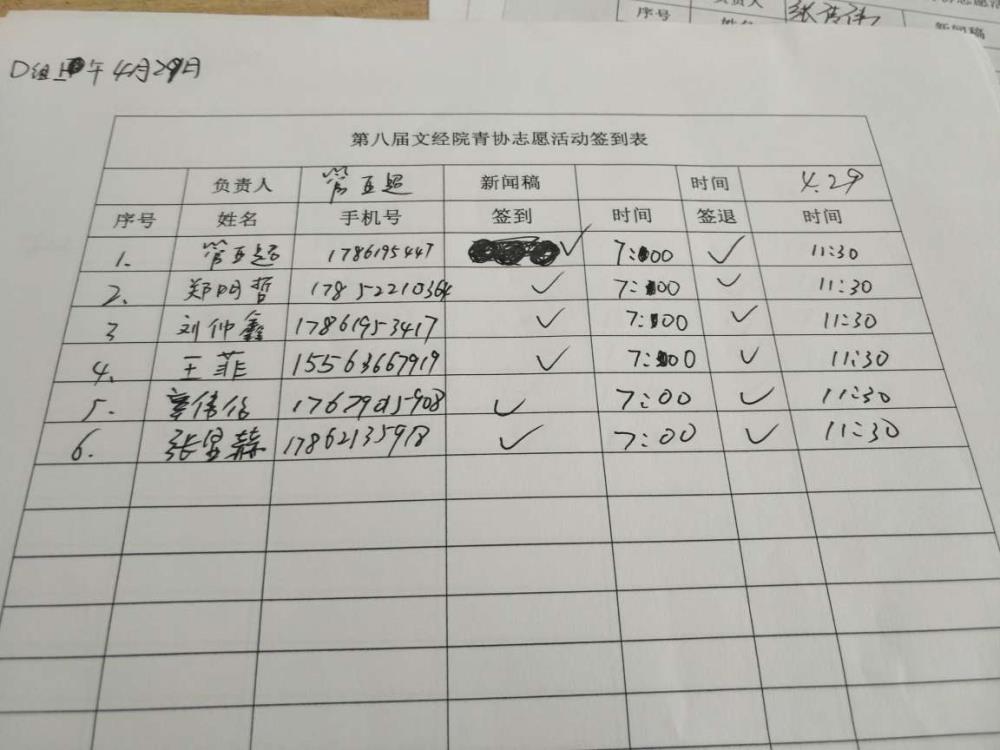 负责人
序号
D组上午4月29日
第八届文经院青协志愿活动签到表
负责人 管亚超 新闻稿 时间 4.29
序号 姓名 手机号 签到 时间 签退 时间
1. 管亚超 1786195447 ✓ 7:00 ✓ 11:30
2. 郑明哲 17852210364 ✓ 7:00 ✓ 11:30
3 刘仲鑫 17861953417 ✓ 7:00 ✓ 11:30
4. 王菲 15563667919 ✓ 7:00 ✓ 11:30
5. ✓ 7:00 ✓ 11:30
6. 张昱赫 17862135918 ✓ 7:00 ✓ 11:30